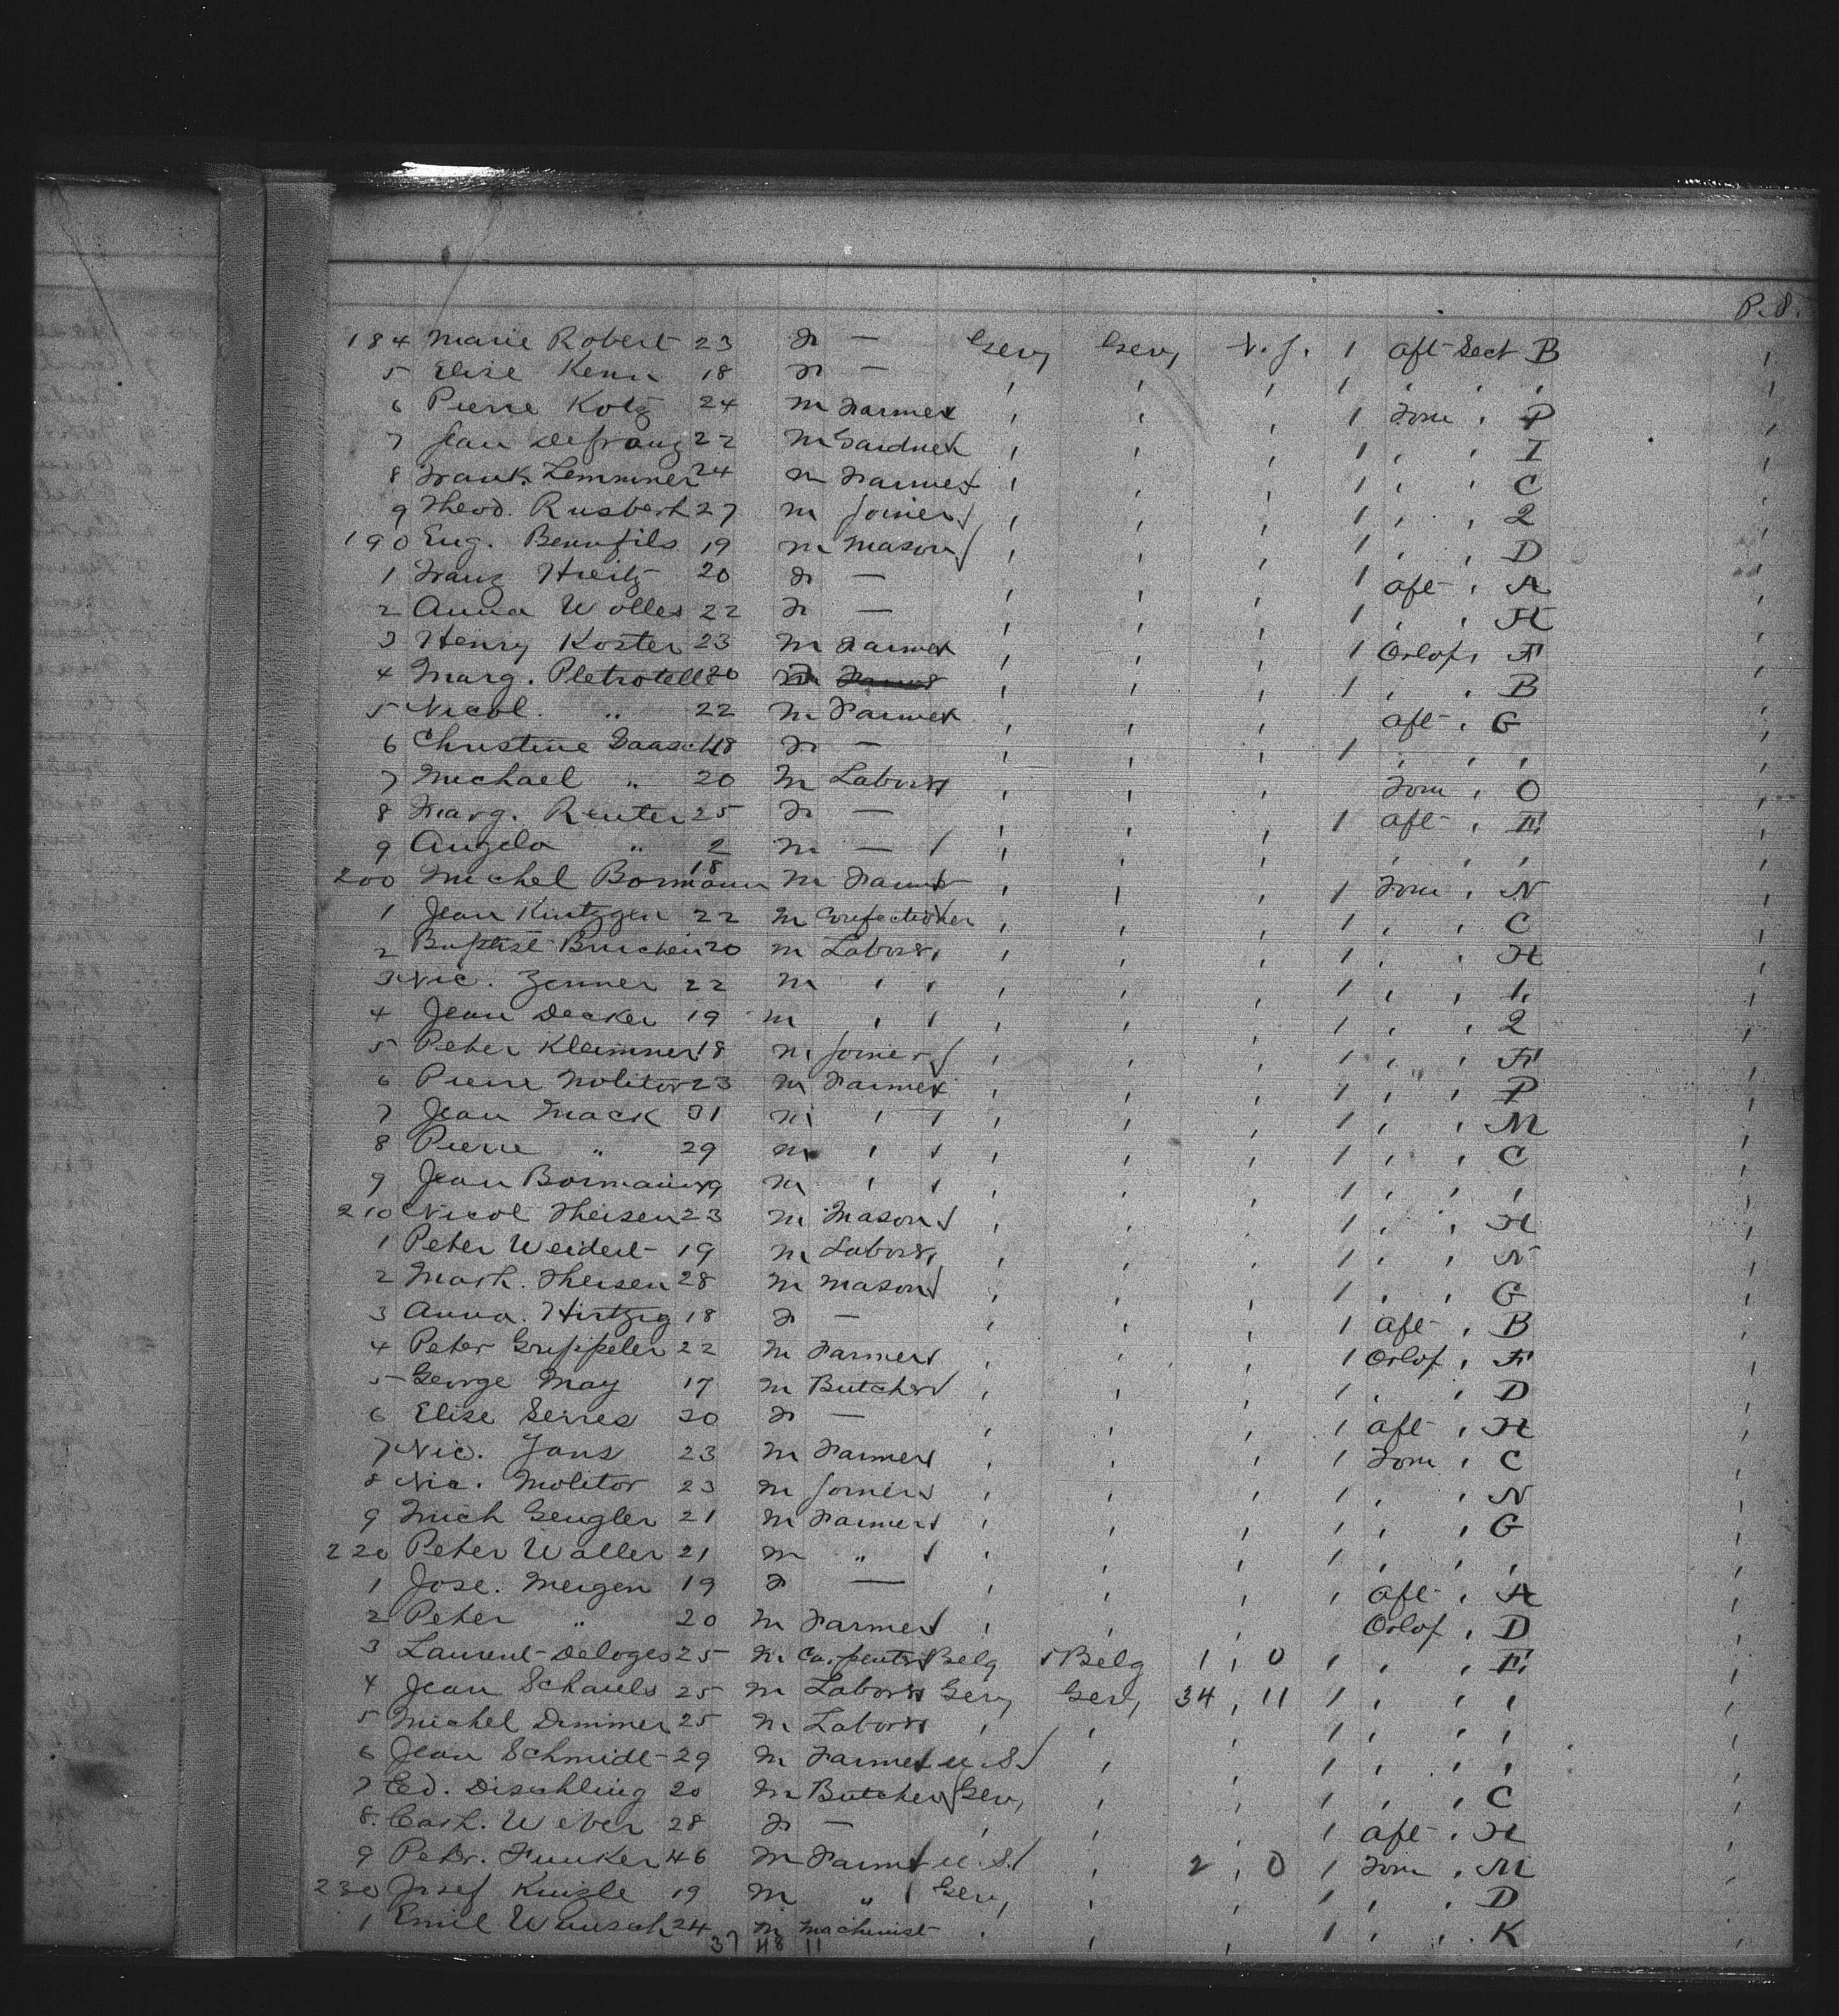 P. S.
184 Marie Robert 23 F — Gery Gery N.J. 1 aft Sect B
5 Elise Kenn 18 F — , , , 1 , , ,
6 Pierre Kolz 24 M Farmer , , , 1 Forw , P
7 Jean Defrang 22 M Gardner , , , 1 , , I
8 Frank Lemmner 24 M Farmer , , , 1 , , C
9 Theod. Rusbert 27 M Joiner , , , 1 , , 2
190 Eug. Bennfils 19 M Mason , , , 1 , , D
1 Franz 20 F — , , , 1 aft , A
2 Anna Wolles 22 F — , , , 1 , , H
3 Henry Koster 23 M Farmer , , , 1 Orlof , F
4 Marg. Pletrotelle 20 , , , 1 , , B
5 Nicol. " 22 M Farmer , , , aft , G
6 Christine 18 F — , , , 1 , , ,
7 Michael " 20 M Labors , , , Forw , O
8 Marg. Reuter 25 F — , , , 1 aft , E
9 Angela " 2 M — , , , , , ,
200 Michel Bormann 18 M Farmer , , , 1 Forw , N
1 Jean Kintzgen 22 M Confectioner , , , 1 , , C
2 Baptist Bruchen 20 M Labors , , , 1 , , H
3 Nic. Zenner 22 M , , , , 1 , , 1.
4 Jean Decker 19 M , , , , 1 , , 2
5 Peter Klemmner 18 M Joiner , , , 1 , , F
6 Pierre Molitor 23 M Farmer , , , 1 , , P
7 Jean Mack 31 M , , , , 1 , , M
8 Pierre " 29 M , , , , 1 , , C
9 Jean Bormann 19 M , , , , 1 , , ,
210 Nicol Theisen 23 M Mason , , , 1 , , H
1 Peter Weidert 19 M Labors , , , 1 , , N
2 Math. Theisen 28 M Mason , , , 1 , , G
3 Anna. Hirtzig 18 F — , , , 1 aft , B
4 Peter Gruppeler 22 M Farmer , , , 1 Orlof , F
5 George May 17 M Butcher , , , 1 , , D
6 Elise Serres 20 F — , , , 1 aft , H
7 Nic. Jans 23 M Farmer , , , 1 Forw , C
8 Nic. Molitor 23 M Joiner , , , 1 , , N
9 Mich Gengler 21 M Farmer , , , 1 , , G
220 Peter Waller 21 M " , , , 1 , , ,
1 Jose. Meigen 19 F — , , , 1 aft , A
2 Peter " 20 M Farmer , , , Orlof , D
3 Laurent Deloges 25 M Carpenter Belg Belg 1 , 0 1 , , E
4 Jean Schauls 25 M Labors Gery Gery 34 , 11 1 , , ,
5 Michel Dimmer 25 M Labors , , , 1 , , ,
6 Jean Schmidt 29 M Farmer U.S. , , 1 , , ,
7 Ed. Dischling 20 M Butcher Gery , , 1 , , C
8. Cath. Weber 28 F — , , , 1 aft , H
9 Petr. Funker 46 M Farmer U.S. , 2 , 0 1 Forw , M
230 Josef Kinzle 19 M " Gery , , 1 , , D
1 Emil Wunsch 24 M Machinist , , , 1 , , K
37 48 11